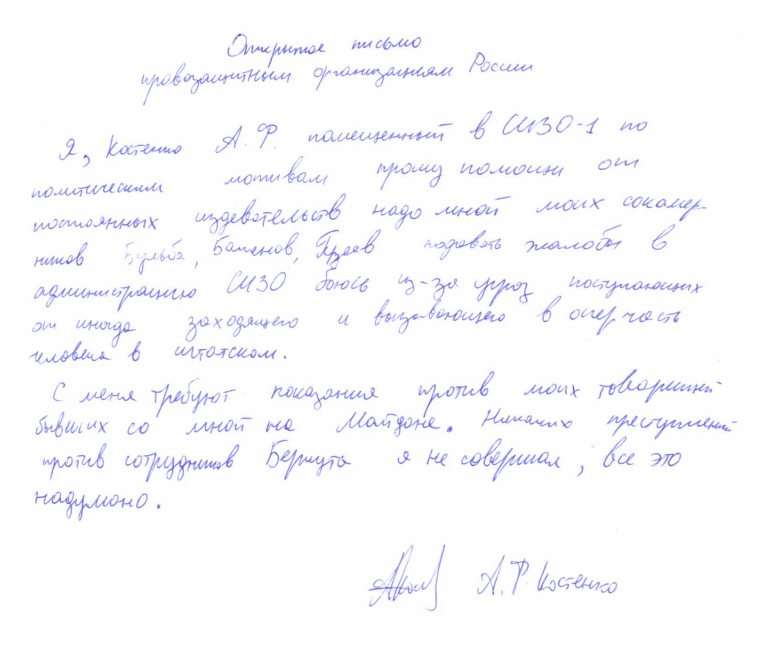 Открытое письмо
правозащитным организациям России
Я, Костенко А.Ф. помещенный в СИЗО-1 по
политическим мотивам прошу помощи от
постоянных издевательств надо мной моих сокамер-
ников Бульба, Баженов, подавать жалобы в
администрацию СИЗО боюсь из-за угроз поступающих
от иногда заходящего и вызывающего в оперчасть
человека в штатском.
С меня требуют показания против моих товарищей
бывших со мной на Майдане. Никаких преступлений
против сотрудников Беркута я не совершал, все это
надумано.
А.Ф. Костенко